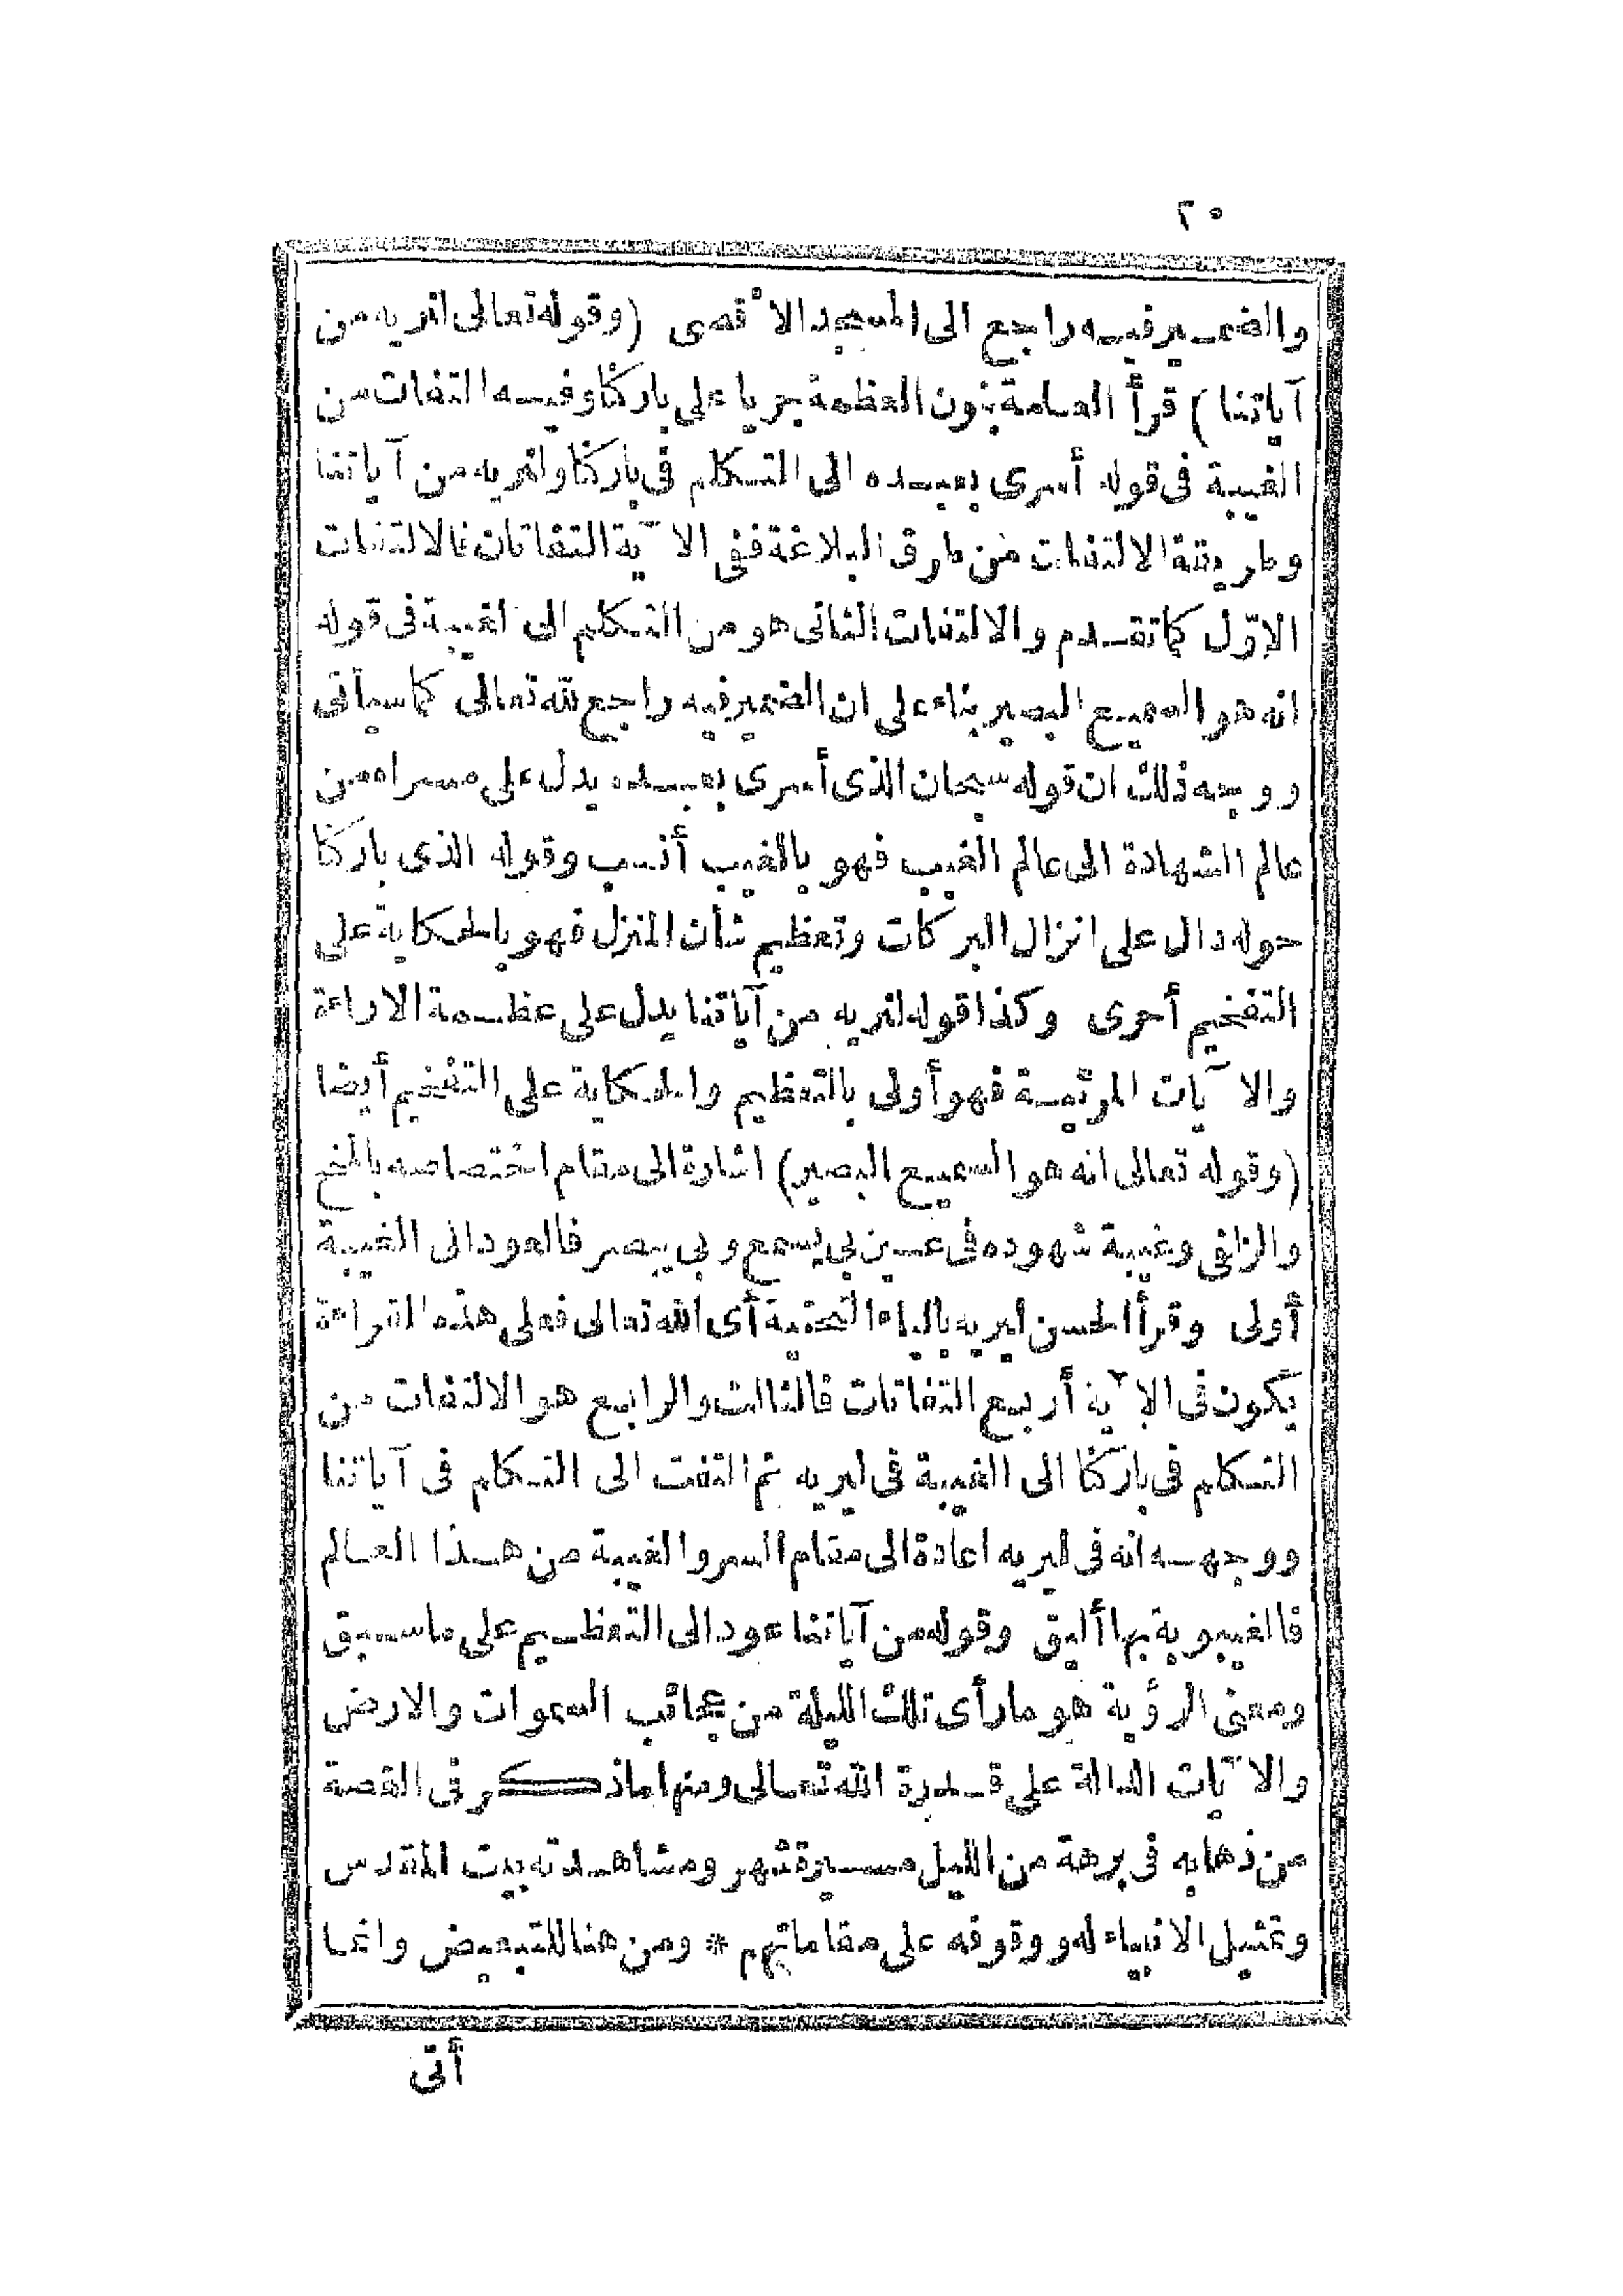 ٢٠
والضمير فيه راجع الى المسجد الأقصى (وقوله تعالى لنريه من
آياتنا) قرأ العامة بنون العظمة جريا على باركنا وفيه التفات من
الغيبة فى قوله أسرى بعبده الى التكلم فى باركنا ولنريه من آياتنا
وطريقة الالتفات من طرق البلاغة ففى الآية التفاتان فالالتفات
الاوّل كما تقدم والالتفات الثانى هو من التكلم الى الغيبة فى قوله
انه هو السميع البصير بناء على ان الضمير فيه راجع لله تعالى كما سيأتى
ووجه ذلك ان قوله سبحان الذى أسرى بعبده يدل على مسراه من
عالم الشهادة الى عالم الغيب فهو بالغيب أنسب وقوله الذى باركنا
حوله دال على انزال البركات وتعظيم شأن المنزل فهو بالحكاية على
التفخيم أحرى وكذا قوله لنريه من آياتنا يدل على عظمة الاراءة
والآيات المرئية فهو أولى بالتعظيم والحكاية على التفخيم أيضا
(وقوله تعالى انه هو السميع البصير) اشارة الى مقام اختصاصه بالمنح
والزلفى وغيبة شهوده فى عين بى يسمع وبى يبصر فالعود الى الغيبة
أولى وقرأ الحسن ليريه بالياء التحتية أى الله تعالى فعلى هذه القراءة
يكون فى الآية أربع التفاتات فالثالث والرابع هو الالتفات من
التكلم فى باركنا الى الغيبة فى ليريه ثم التفت الى التكلم فى آياتنا
ووجهه انه فى ليريه اعادة الى مقام السر والغيبة من هذا العالم
فالغيبوبة بها أليق وقوله من آياتنا عود الى التعظيم على ما سبق
ومعنى الرؤية هو ما رأى تلك الليلة من عجائب السموات والارض
والآيات الدالة على قدرة الله تعالى ومنها ما ذكر فى القصة
من ذهابه فى برهة من الليل مسيرة شهر ومشاهدته بيت المقدس
وتمثيل الانبياء له ووقوفه على مقاماتهم * ومن هنا للتبعيض وانما
أتى